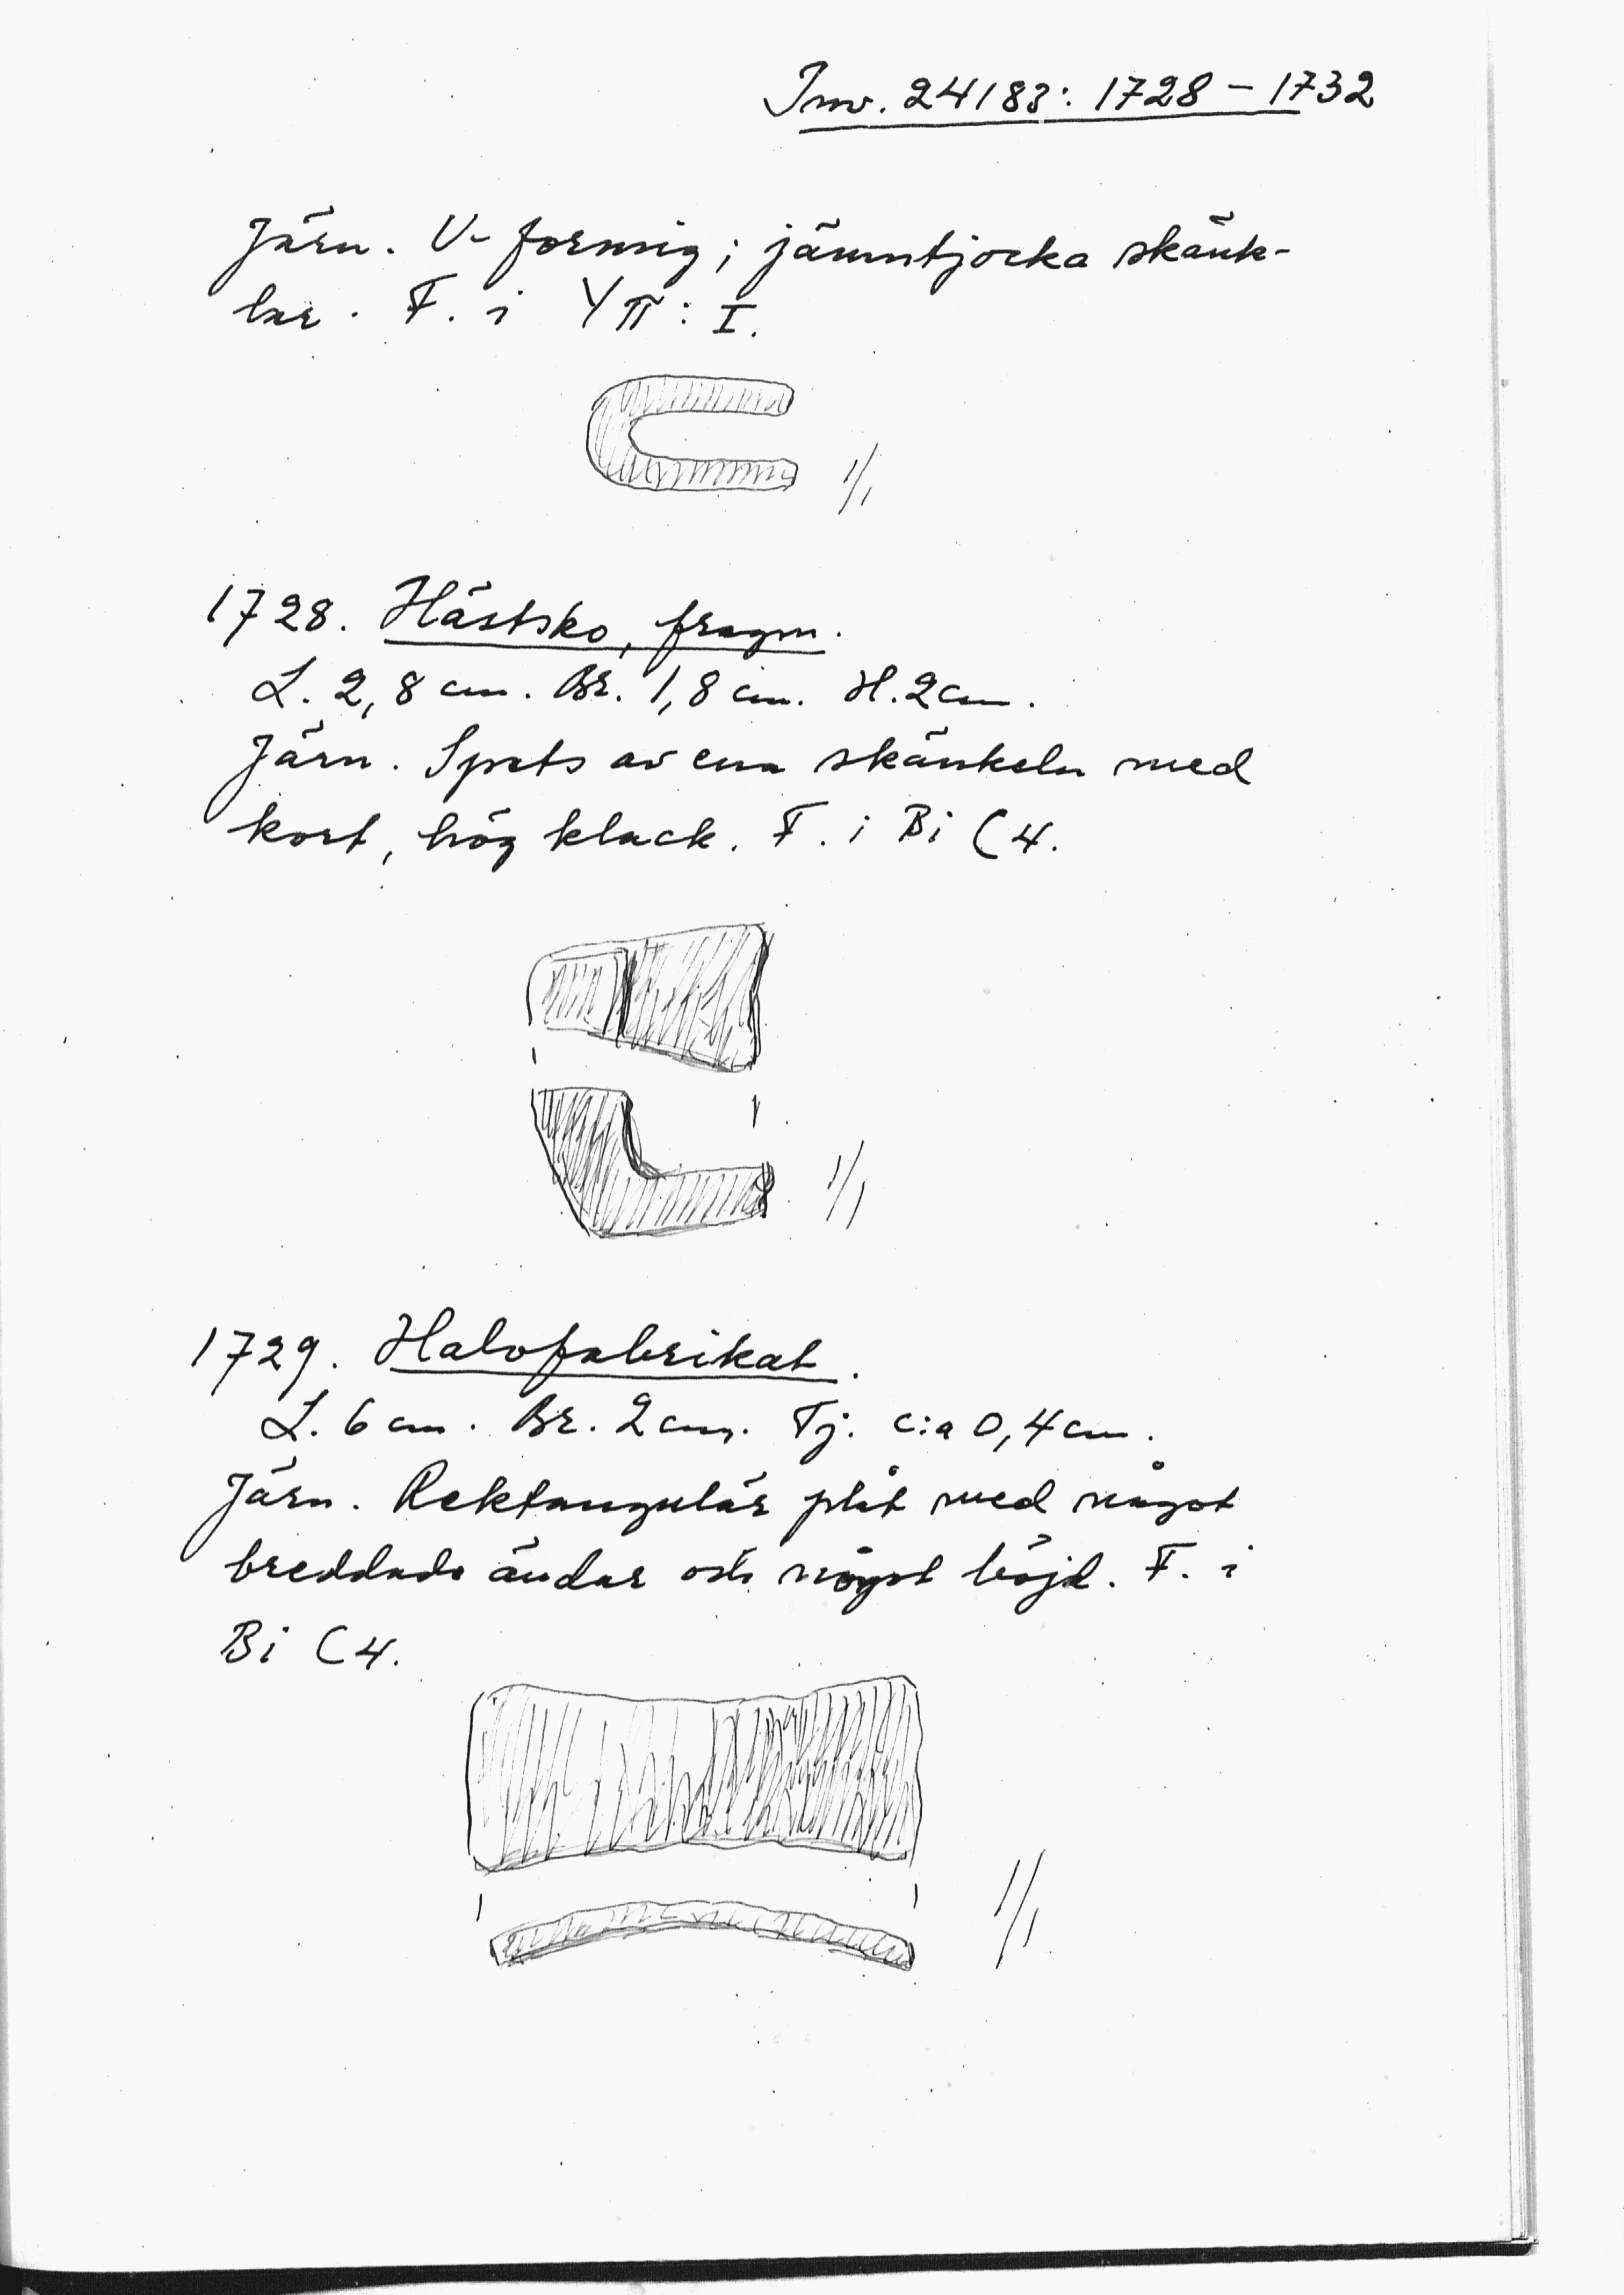 Inv. 24183: 1728 - 1732
Järn. U-formig; jämntjocka skänk-
lar. F. i YII: I.
1/1
1728. Hästsko, fragm.
L. 2,8 cm. Br. 1,8 cm. H. 2 cm.
Järn. Spets av ena skänkeln med
kort, hög klack. F. i Bi C4.
1/1
1729. Halvfabrikat.
L. 6 cm. Br. 2 cm. Tj. c:a 0,4 cm.
Järn. Rektangulär plåt med något
breddade ändar och något böjd. F. i
Bi C4.
1/1